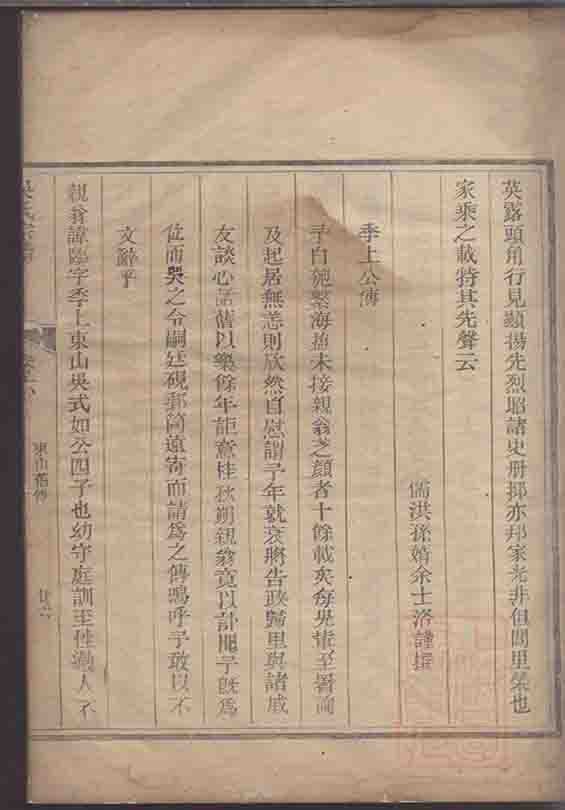 英露頭角行見顯揚先烈昭諸史冊抑亦邦家光非但閭里榮也
家乘之載特其先聲云
儒洪孫婿余士洛謹撰
季上公傳
予自施繫海 未接親翁之顏者十餘載矣每吳 至署 詢
及起居無恙則欣然自慰謂予年就衰將告政歸里與諸戚
友談心話舊以樂餘年詎意桂秋朔親翁竟以訃聞予旣爲
位而哭之令嗣廷硯郵筒遠寄而請爲之傳嗚呼予敢以不
文辭乎
親翁諱臨字季上東山吳式如公四子也幼守庭訓至性過人不
東山舊傳